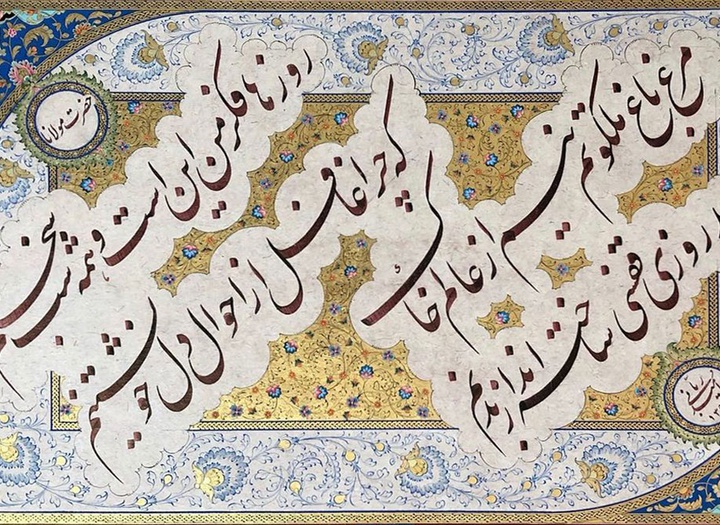 مرغ باغ ملکوتم نیم از عالم خاک
روزی قفسی ساخته اند از بدنم
روزها فکر من این است و همه شب سخنم
که چرا غافل از احوال دل خویشتنم
حضرت مولانا